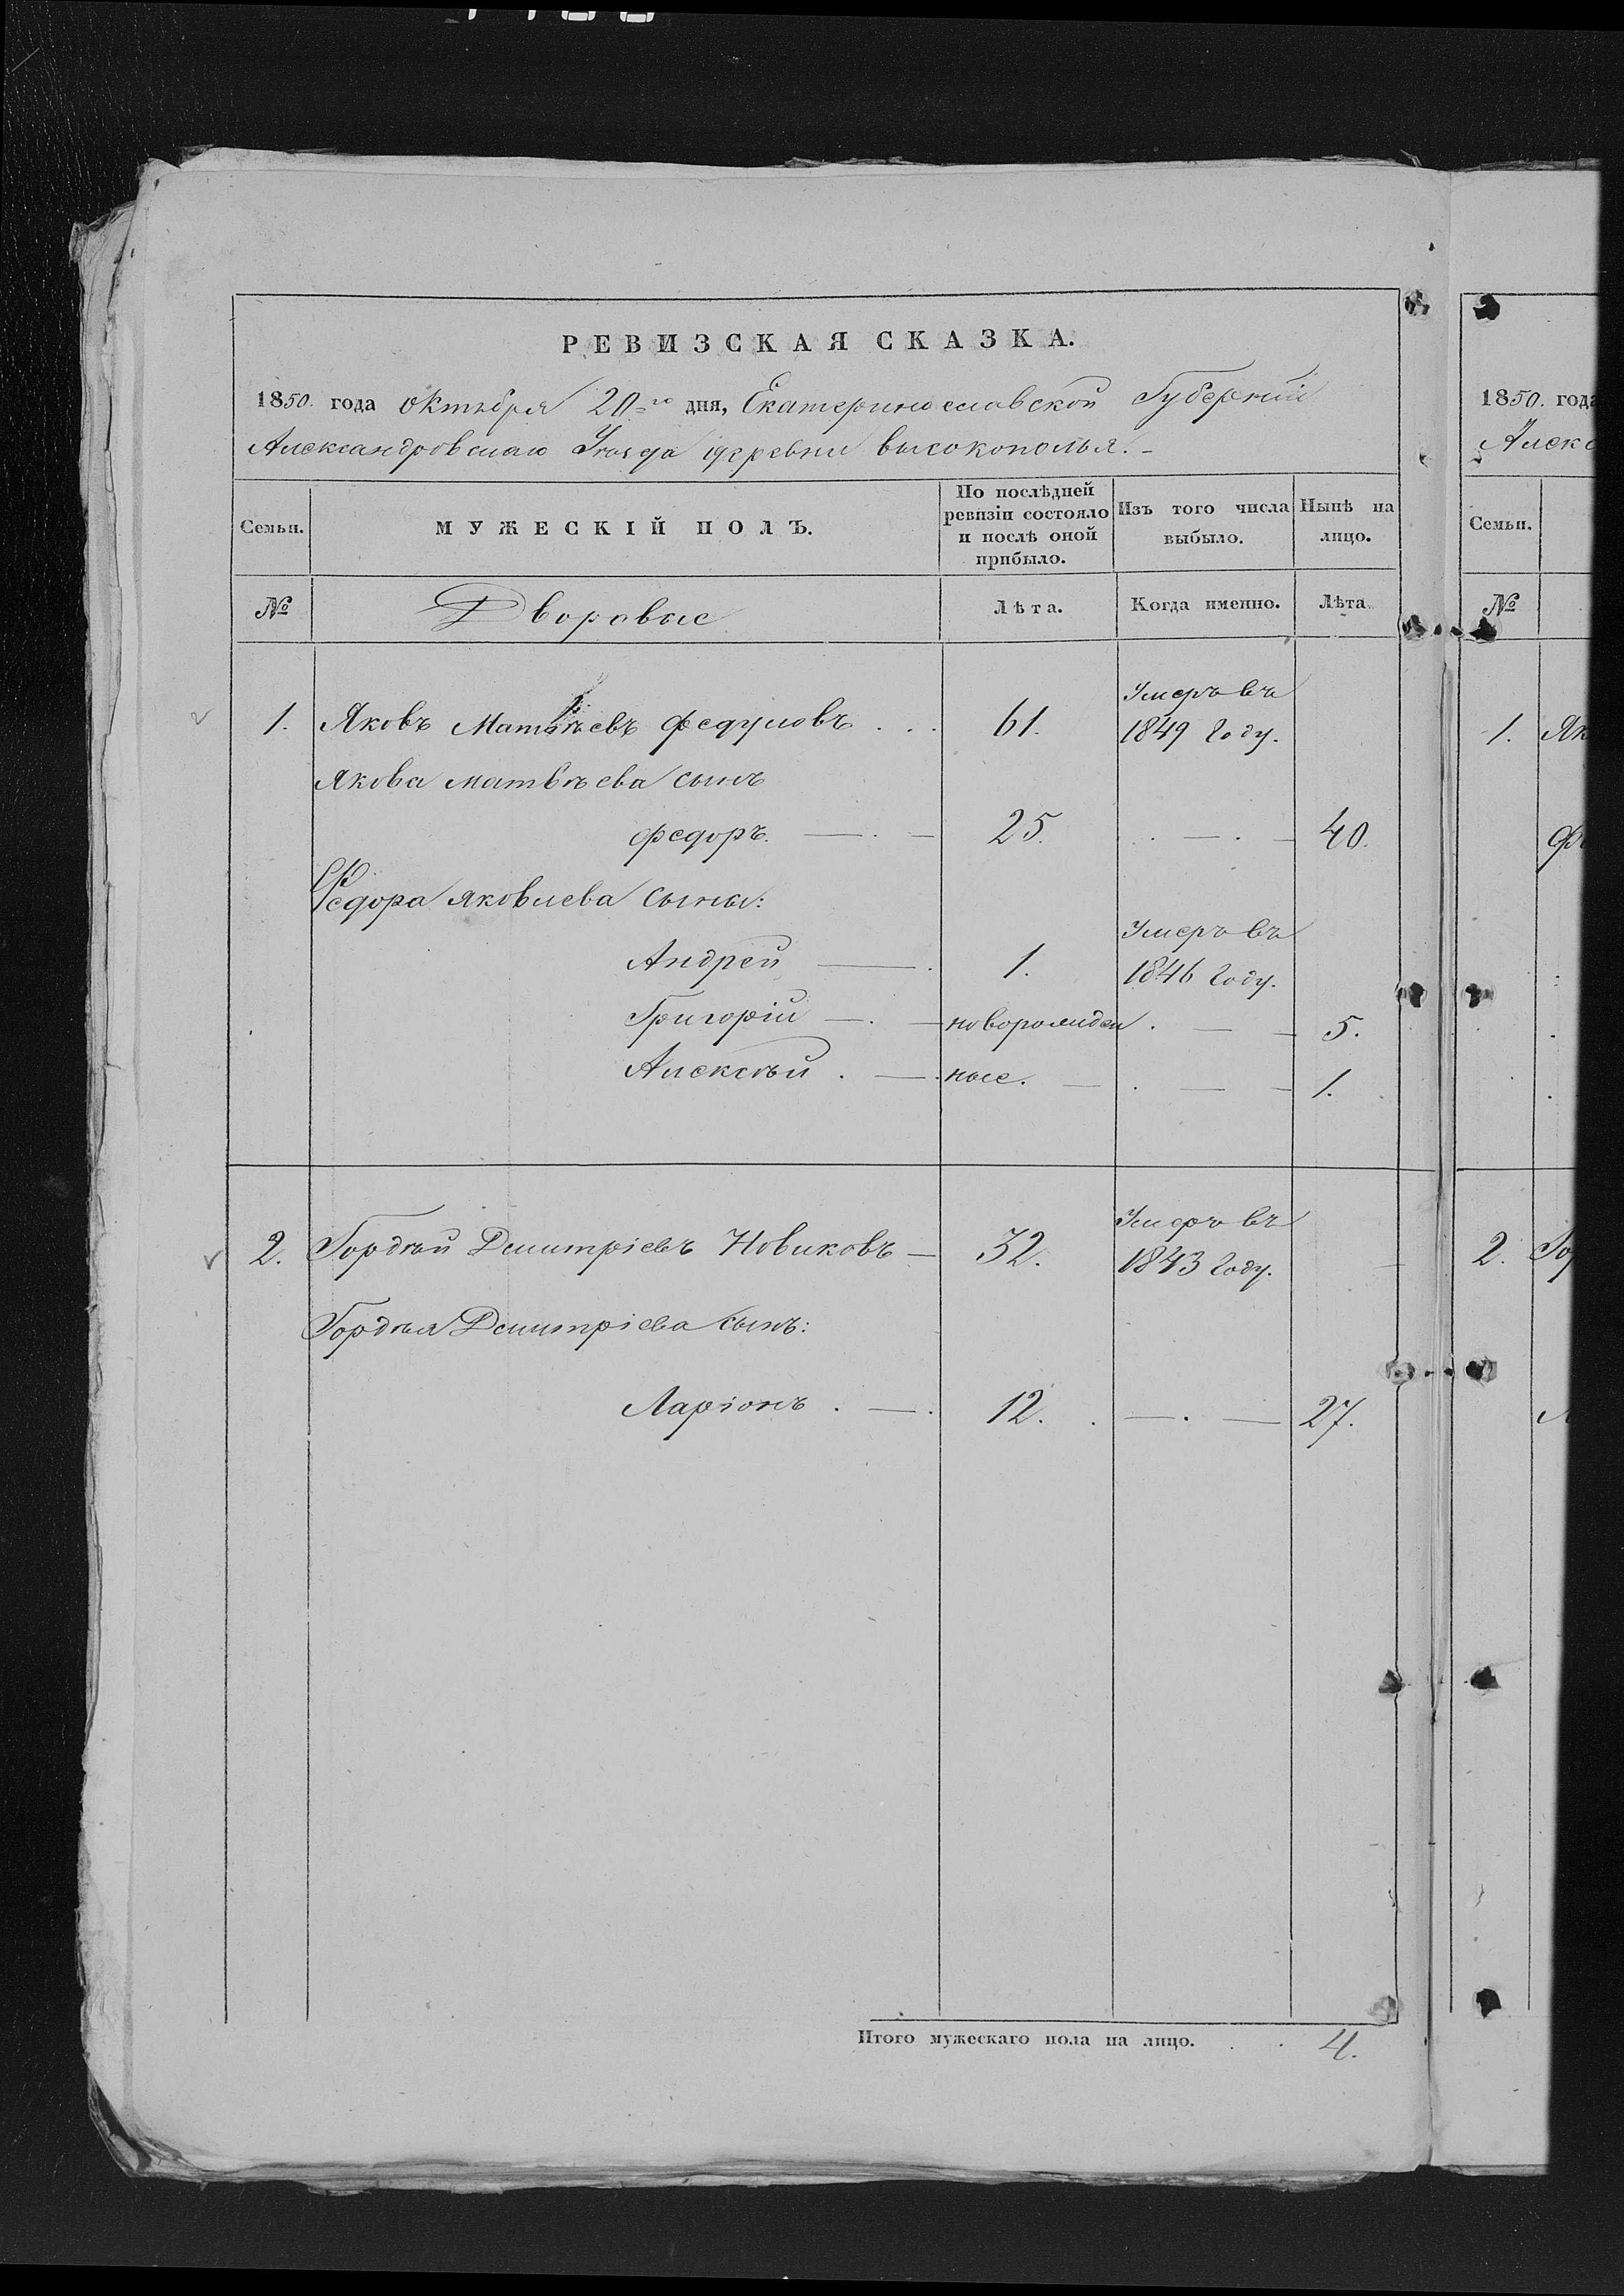 РЕВИЗСКАЯ СКАЗКА.
1850. года октября 20го дня, Екатеринославской Губерніи
Александровскаго Уѣзда деревни высокополья.
Семьи.
МУЖЕСКІЙ ПОЛЪ.
По послѣдней ревизіи состояло и послѣ оной прибыло.
Изъ того числа выбыло.
Нынѣ на лицо.
№
Дворовые
Лѣта.
Когда именно.
Лѣта
1. Яковъ Матвѣевъ Федуловъ . . . 61. Умеръ въ 1849 году.
Якова матвѣева сынъ
федоръ. 25. 40.
Федора яковлева сыны:
Андрей 1. Умеръ въ 1846 году.
Григорій новорожден 5.
Алексѣй ные. 1.
2. Гордѣй Дмитріевъ Новиковъ 32. Умеръ въ 1843 году.
Гордѣя Дмитріева сынъ:
Ларіонъ 12. 27.
Итого мужескаго пола на лицо. 4.
1850. года
Алекс
Семьи.
№
1. Як
Ф
2. Гор